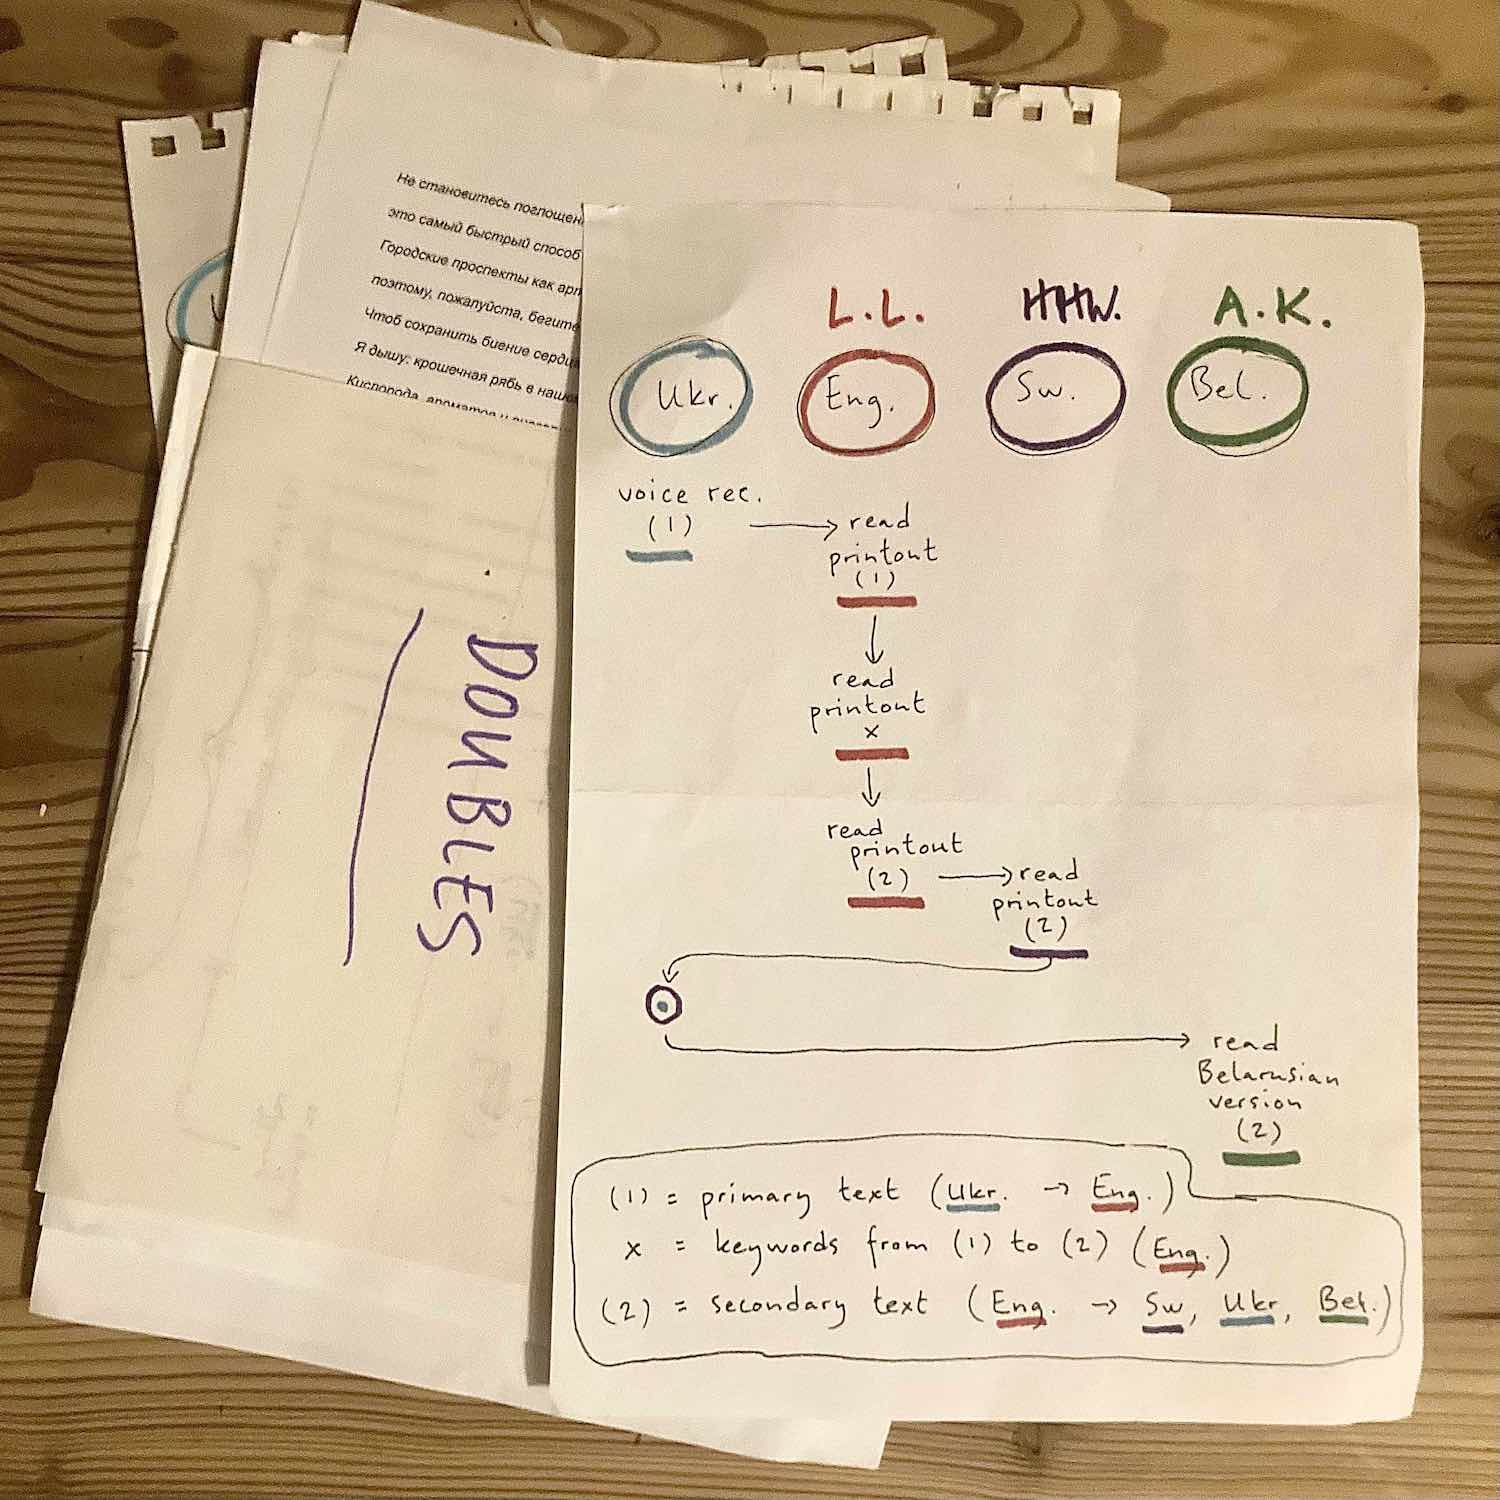 Не становитесь поглощен
это самый быстрый способ
Городские проспекты как арт
поэтому, пожалуйста, бегите
Чтоб сохранить биение сердц
Я дышу: крошечная рябь в наше
Кислорода, ароматов и
DOUBLES
L.L. HHW. A.K.
Ukr. Eng. Sw. Bel.
voice rec.
(1) → read
printout
(1)
↓
read
printout
x
↓
read
printout
(2) → read
printout
(2)
→ read
Belarusian
version
(2)
(1) = primary text (Ukr. → Eng.)
x = keywords from (1) to (2) (Eng.)
(2) = secondary text (Eng. → Sw, Ukr, Bel.)